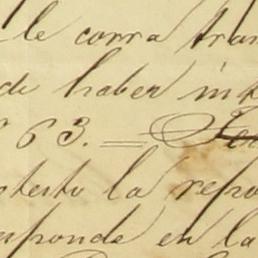 le corra tran
de haber int
63. = 
testo la repo
sponde en la